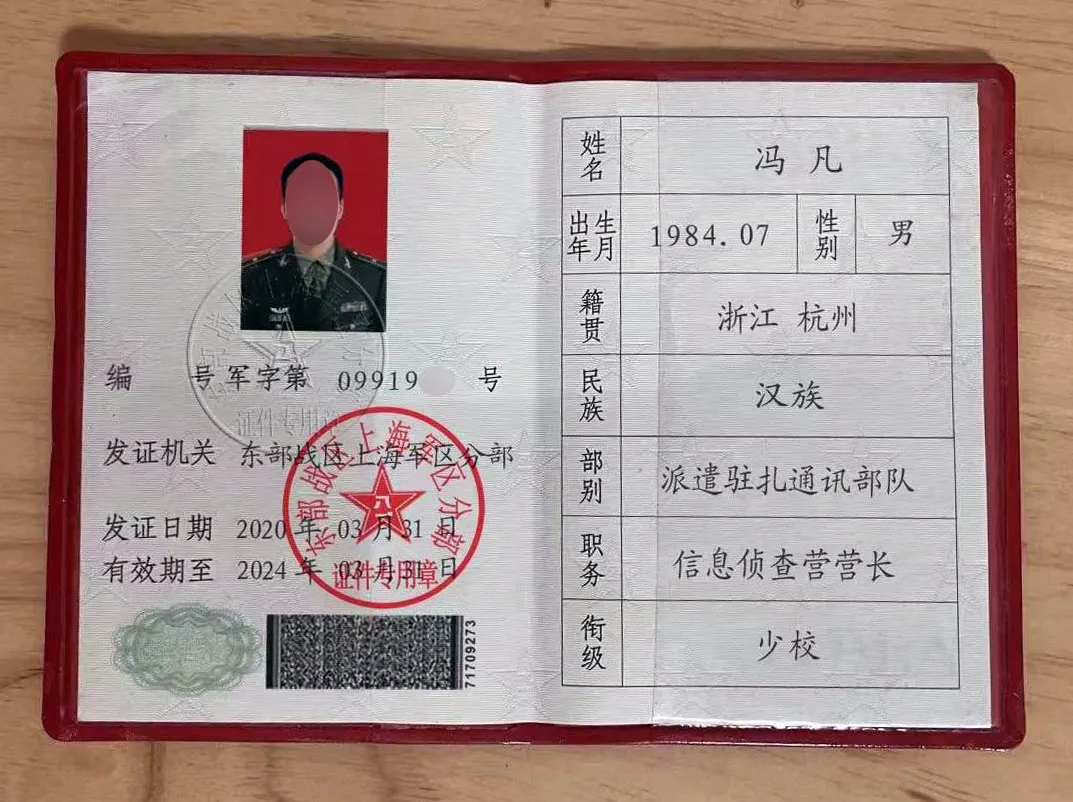 编 号 军字第 09919 号
发证机关 东部战区上海军区分部
发证日期 2020 年 03 月 31 日
有效期至 2024 年 03 月 31 日
东部战区上海军区分部
八一
证件专用章
证件专用章
71709273
姓名 冯 凡
出生年月 1984.07 性别 男
籍贯 浙江 杭州
民族 汉族
部别 派遣驻扎通讯部队
职务 信息侦查营营长
衔级 少校